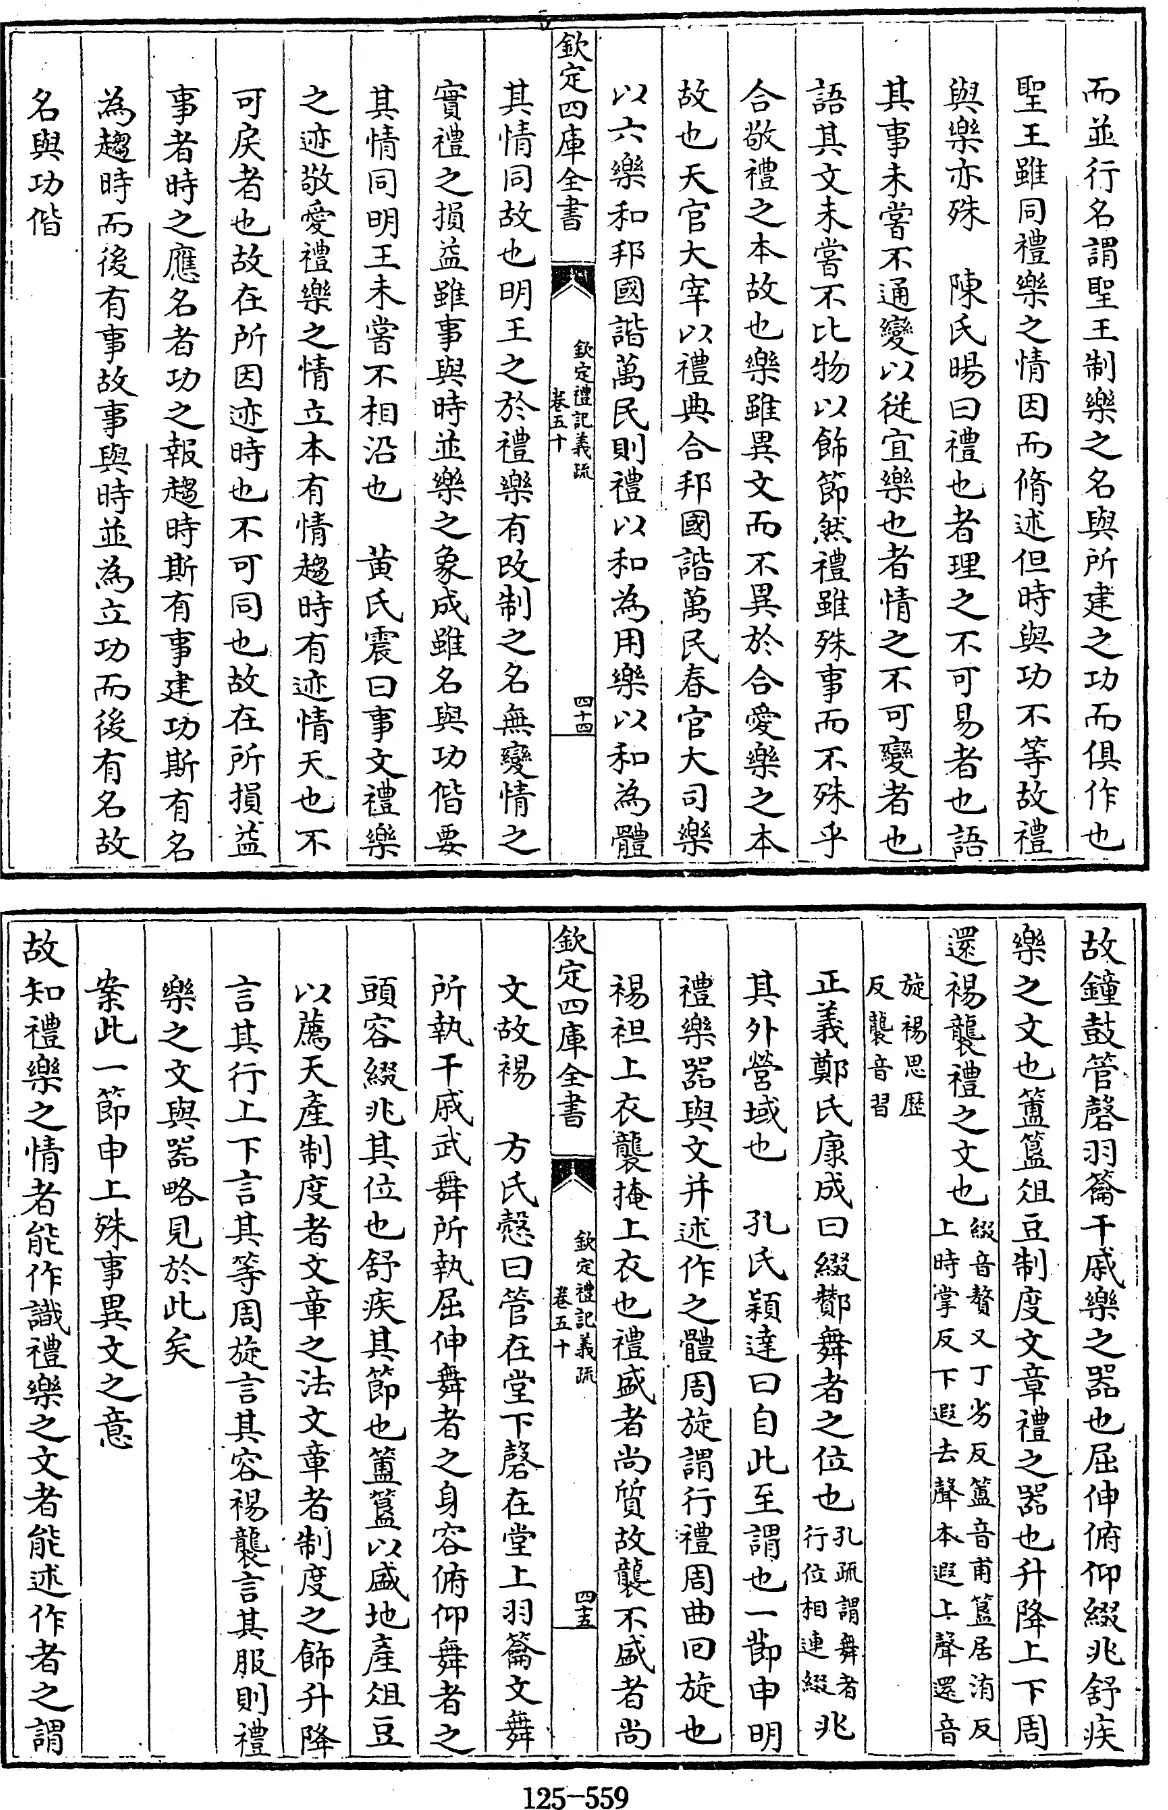 而並行名謂聖王制樂之名與所建之功而俱作也
聖王雖同禮樂之情因而脩述但時與功不等故禮
與樂亦殊　陳氏暘曰禮也者理之不可易者也語
其事未嘗不通變以從宜樂也者情之不可變者也
語其文未嘗不比物以飾節然禮雖殊事而不殊乎
合敬禮之本故也樂雖異文而不異於合愛樂之本
故也天官大宰以禮典合邦國諧萬民春官大司樂
以六樂和邦國諧萬民則禮以和為用樂以和為體
欽定四庫全書
欽定禮記義疏
卷五十
四十四
其情同故也明王之於禮樂有改制之名無變情之
實禮之損益雖事與時並樂之象成雖名與功偕要
其情同明王未嘗不相沿也　黄氏震曰事文禮樂
之迹敬愛禮樂之情立本有情趨時有迹情天也不
可戾者也故在所因迹時也不可同也故在所損益
事者時之應名者功之報趨時斯有事建功斯有名
為趨時而後有事故事與時並為立功而後有名故
名與功偕
故鐘鼓管磬羽籥干戚樂之器也屈伸俯仰綴兆舒疾
樂之文也簠簋俎豆制度文章禮之器也升降上下周
還裼襲禮之文也
綴音贅又丁劣反簠音甫簋居洧反
上時掌反下遐去聲本遐上聲還音
旋裼思歷
反襲音習
正義鄭氏康成曰綴酇舞者之位也
孔疏謂舞者
行位相連綴
兆
其外營域也　孔氏穎達曰自此至謂也一節申明
禮樂器與文并述作之體周旋謂行禮周曲回旋也
裼袒上衣襲掩上衣也禮盛者尚質故襲不盛者尚
欽定四庫全書
欽定禮記義疏
卷五十
四十五
文故裼　方氏慤曰管在堂下磬在堂上羽籥文舞
所執干戚武舞所執屈伸舞者之身容俯仰舞者之
頭容綴兆其位也舒疾其節也簠簋以盛地產俎豆
以薦天產制度者文章之法文章者制度之飾升降
言其行上下言其等周旋言其容裼襲言其服則禮
樂之文與器略見於此矣
案此一節申上殊事異文之意
故知禮樂之情者能作識禮樂之文者能述作者之謂
125-559